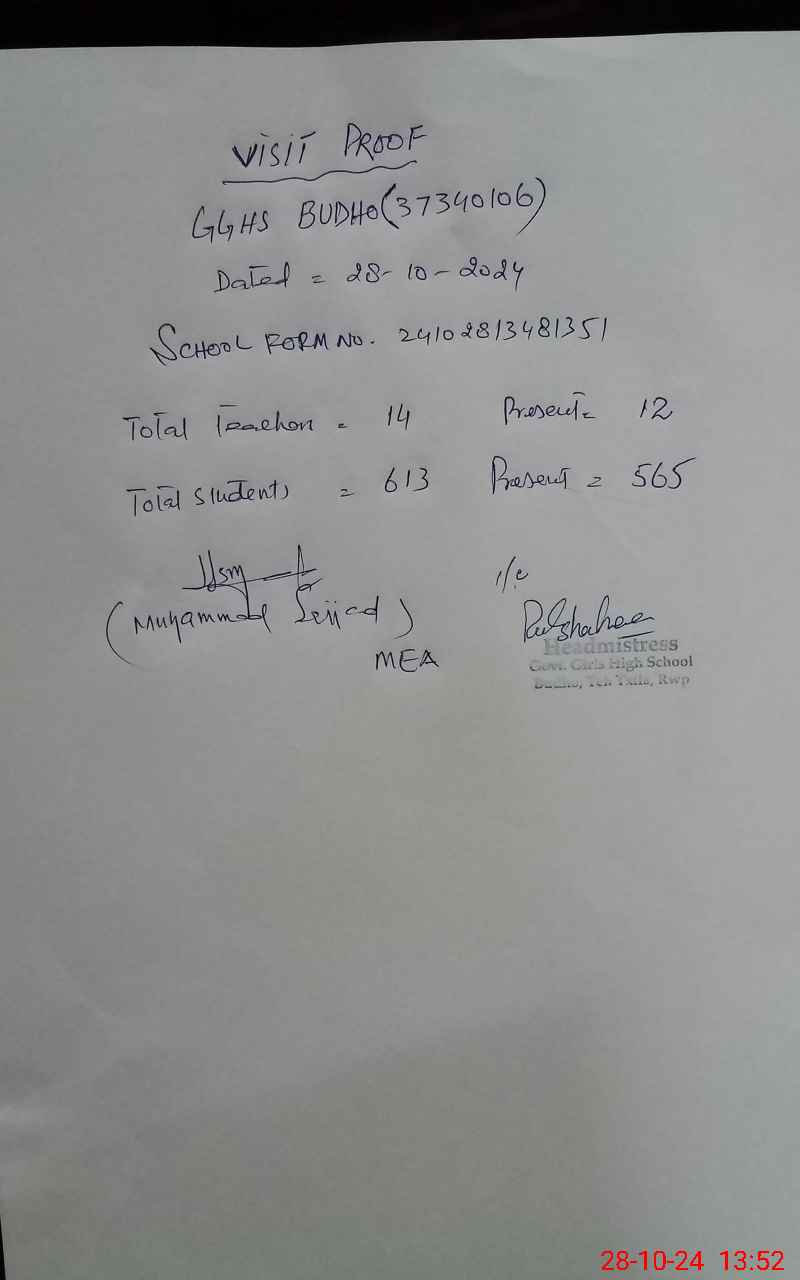 VISIT PROOF
GGHS BUDHO(37340106)
Dated = 28-10-2024
SCHOOL FORM NO. 24102813481351
Total Teacher = 14 Present = 12
Total Students = 613 Present = 565
I/C
(Muhammad Sajjad)
MEA
Headmistress
Govt. Girls High School
Budho, Teh Txila, Rwp
28-10-24 13:52